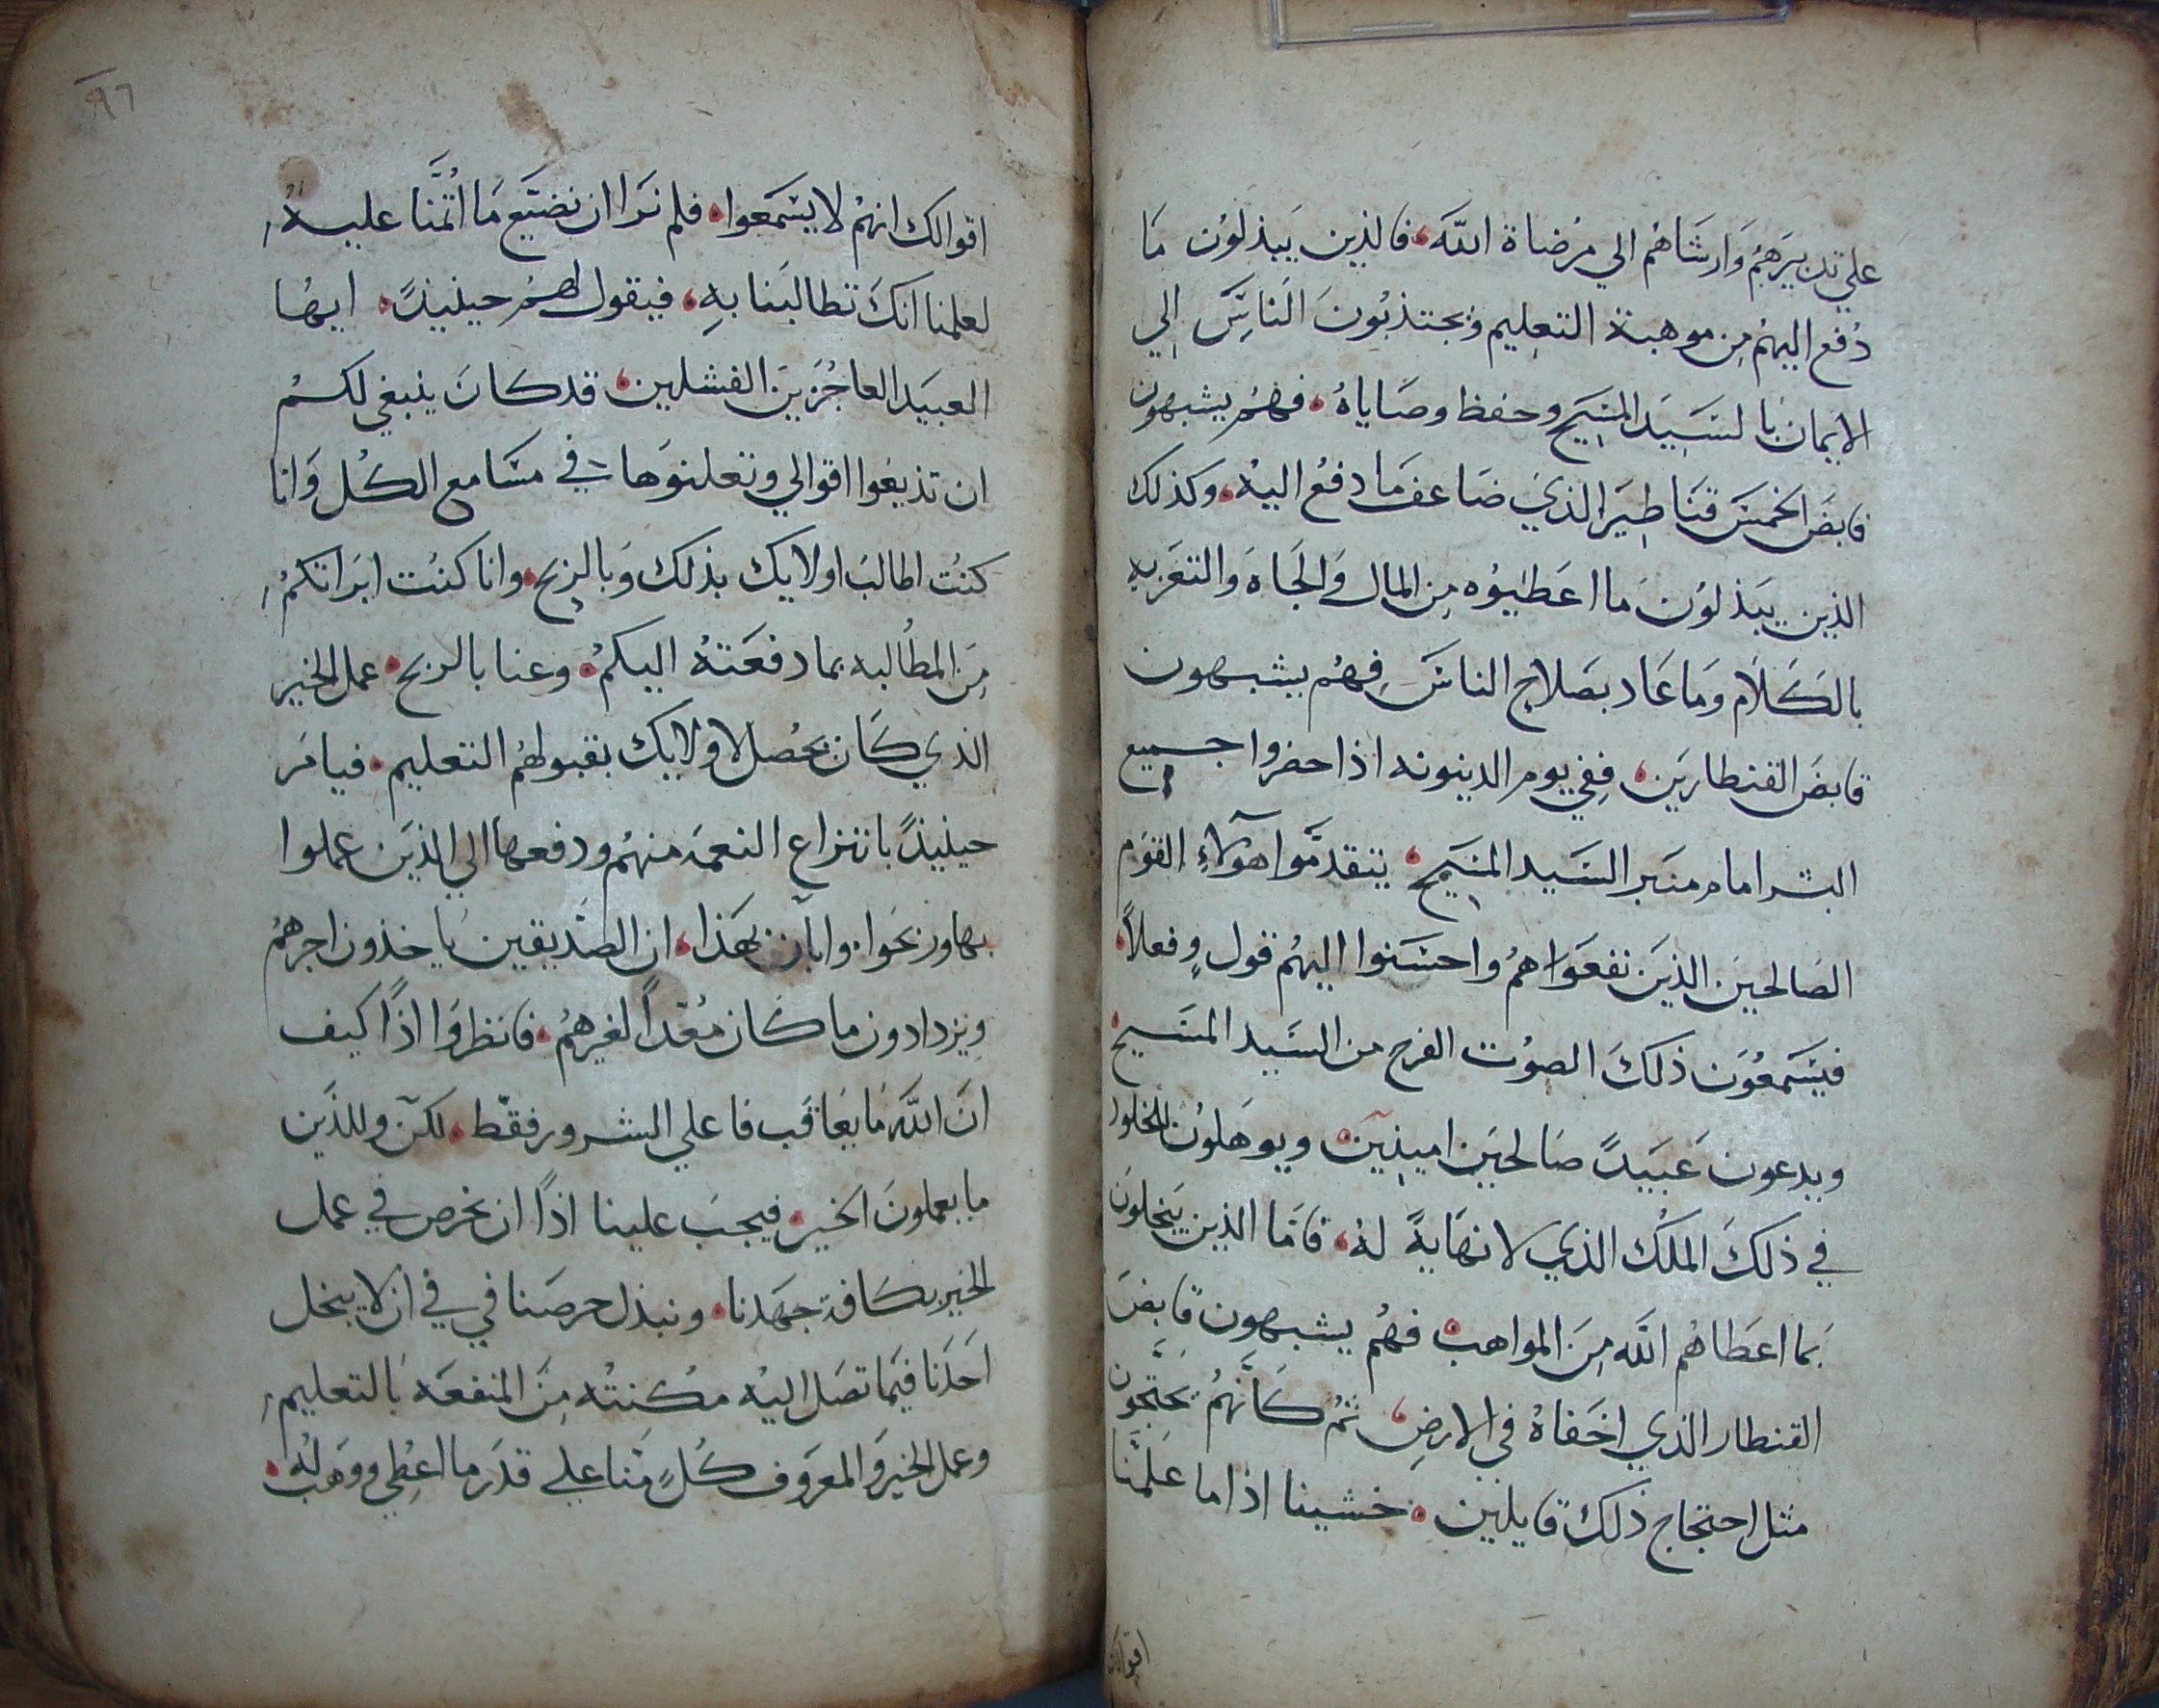 علي تدبيرهم وارشاهم الي مرضاة الله، فالذين يبذلون ما
دفع اليهم من موهبة التعليم ويجتذبون الناس الي
الايمان بالسيد المسيح وحفظ وصاياه، فهم يشبهون
قابض الخمس قناطير الذي ضاعف ما دفع اليه، وكذلك
الذين يبذلون ما اعطيوه من المال والجاه والتعزيه
بالكلام وما عاد بصلاح الناس فهم يشبهون
قابض القنطارين، ففي يوم الدينونه اذا حضروا جميع
البشر امام منبر السيد المسيح، يتقدموا هولاء القوم
الصالحين الذين نفعواهم واحسنوا اليهم قول وفعلاً،
فيسمعون ذلك الصوت الفرح من السيد المسيح
ويدعون عبيدً صالحين امينين ويوهلون للخلود
في ذلك الملك الذي لا نهاية له، فاما الذين يبخلون
بما اعطاهم الله من المواهب فهم يشبهون قابض
القنطار الذي اخفاه في الارض، ثم كانهم يحتجون
مثل احتجاج ذلك قايلين، خشينا اذا ما علمنا
اقوالك
٩٦
اقوالك انهم لا يسمعوا، فلم نرا ان نضيع ما اتمنا عليه
لعلمنا انك تطالبنا به، فيقول لهم حينيذً، ايها
العبيد العاجزين الفشلين، قد كان ينبغي لكم
ان تذيعوا اقوالي وتعلنوها في مسامع الكل وانا
كنت اطالب اولايك بذلك وبالربح، وانا كنت ابراتكم
من المطالبه بما دفعته اليكم، وعنا بالربح، عمل الخير
الذي كان يحصل لاولايك بقبولهم التعليم، فيامر
حينيذً بانتزاع النعمه منهم ودفعها الي الذين عملوا
بها وربحوا، وابان بهذا، ان الصديقين ياخذون اجرهم
ويزدادون ما كان معداً لغيرهم، فانظروا اذاً كيف
ان الله ما يعاقب فاعلي الشرور فقط، لكن وللذين
ما يعملون الخير، فيجب علينا اذاً ان نحرص في عمل
الخير بكافة جهدنا، ونبذل حرصنا في في ان لا يبخل
احدنا فيما تصل اليه مكنته من المنفعه بالتعليم
وعمل الخير والمعروف كل منا علي قدر ما اعطي ووهب له،